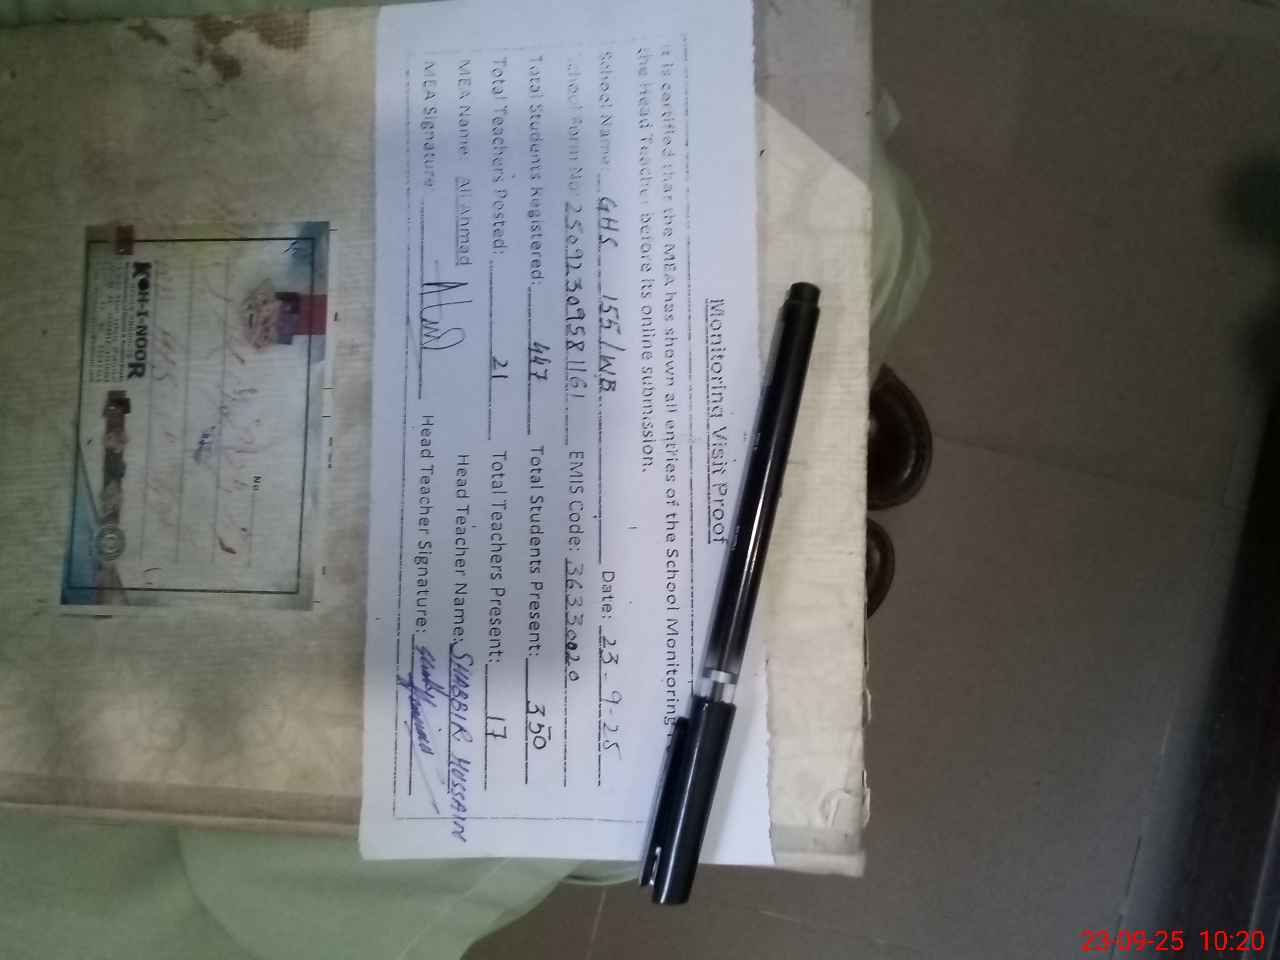 Monitoring Visit Proof
It is certified that the MEA has shown all entries of the School Monitoring
the Head Teacher before its online submission.
School Name: GHS 155/WB Date: 23-9-25
School Form No: 25092309581161 EMIS Code: 36330020
Total Students Registered: 447 Total Students Present: 350
Total Teachers Posted: 21 Total Teachers Present: 17
MEA Name: Ali Ahmad Head Teacher Name: SHABBIR HUSSAIN
MEA Signature: Head Teacher Signature:
No
KOH-I-NOOR
23-09-25 10:20